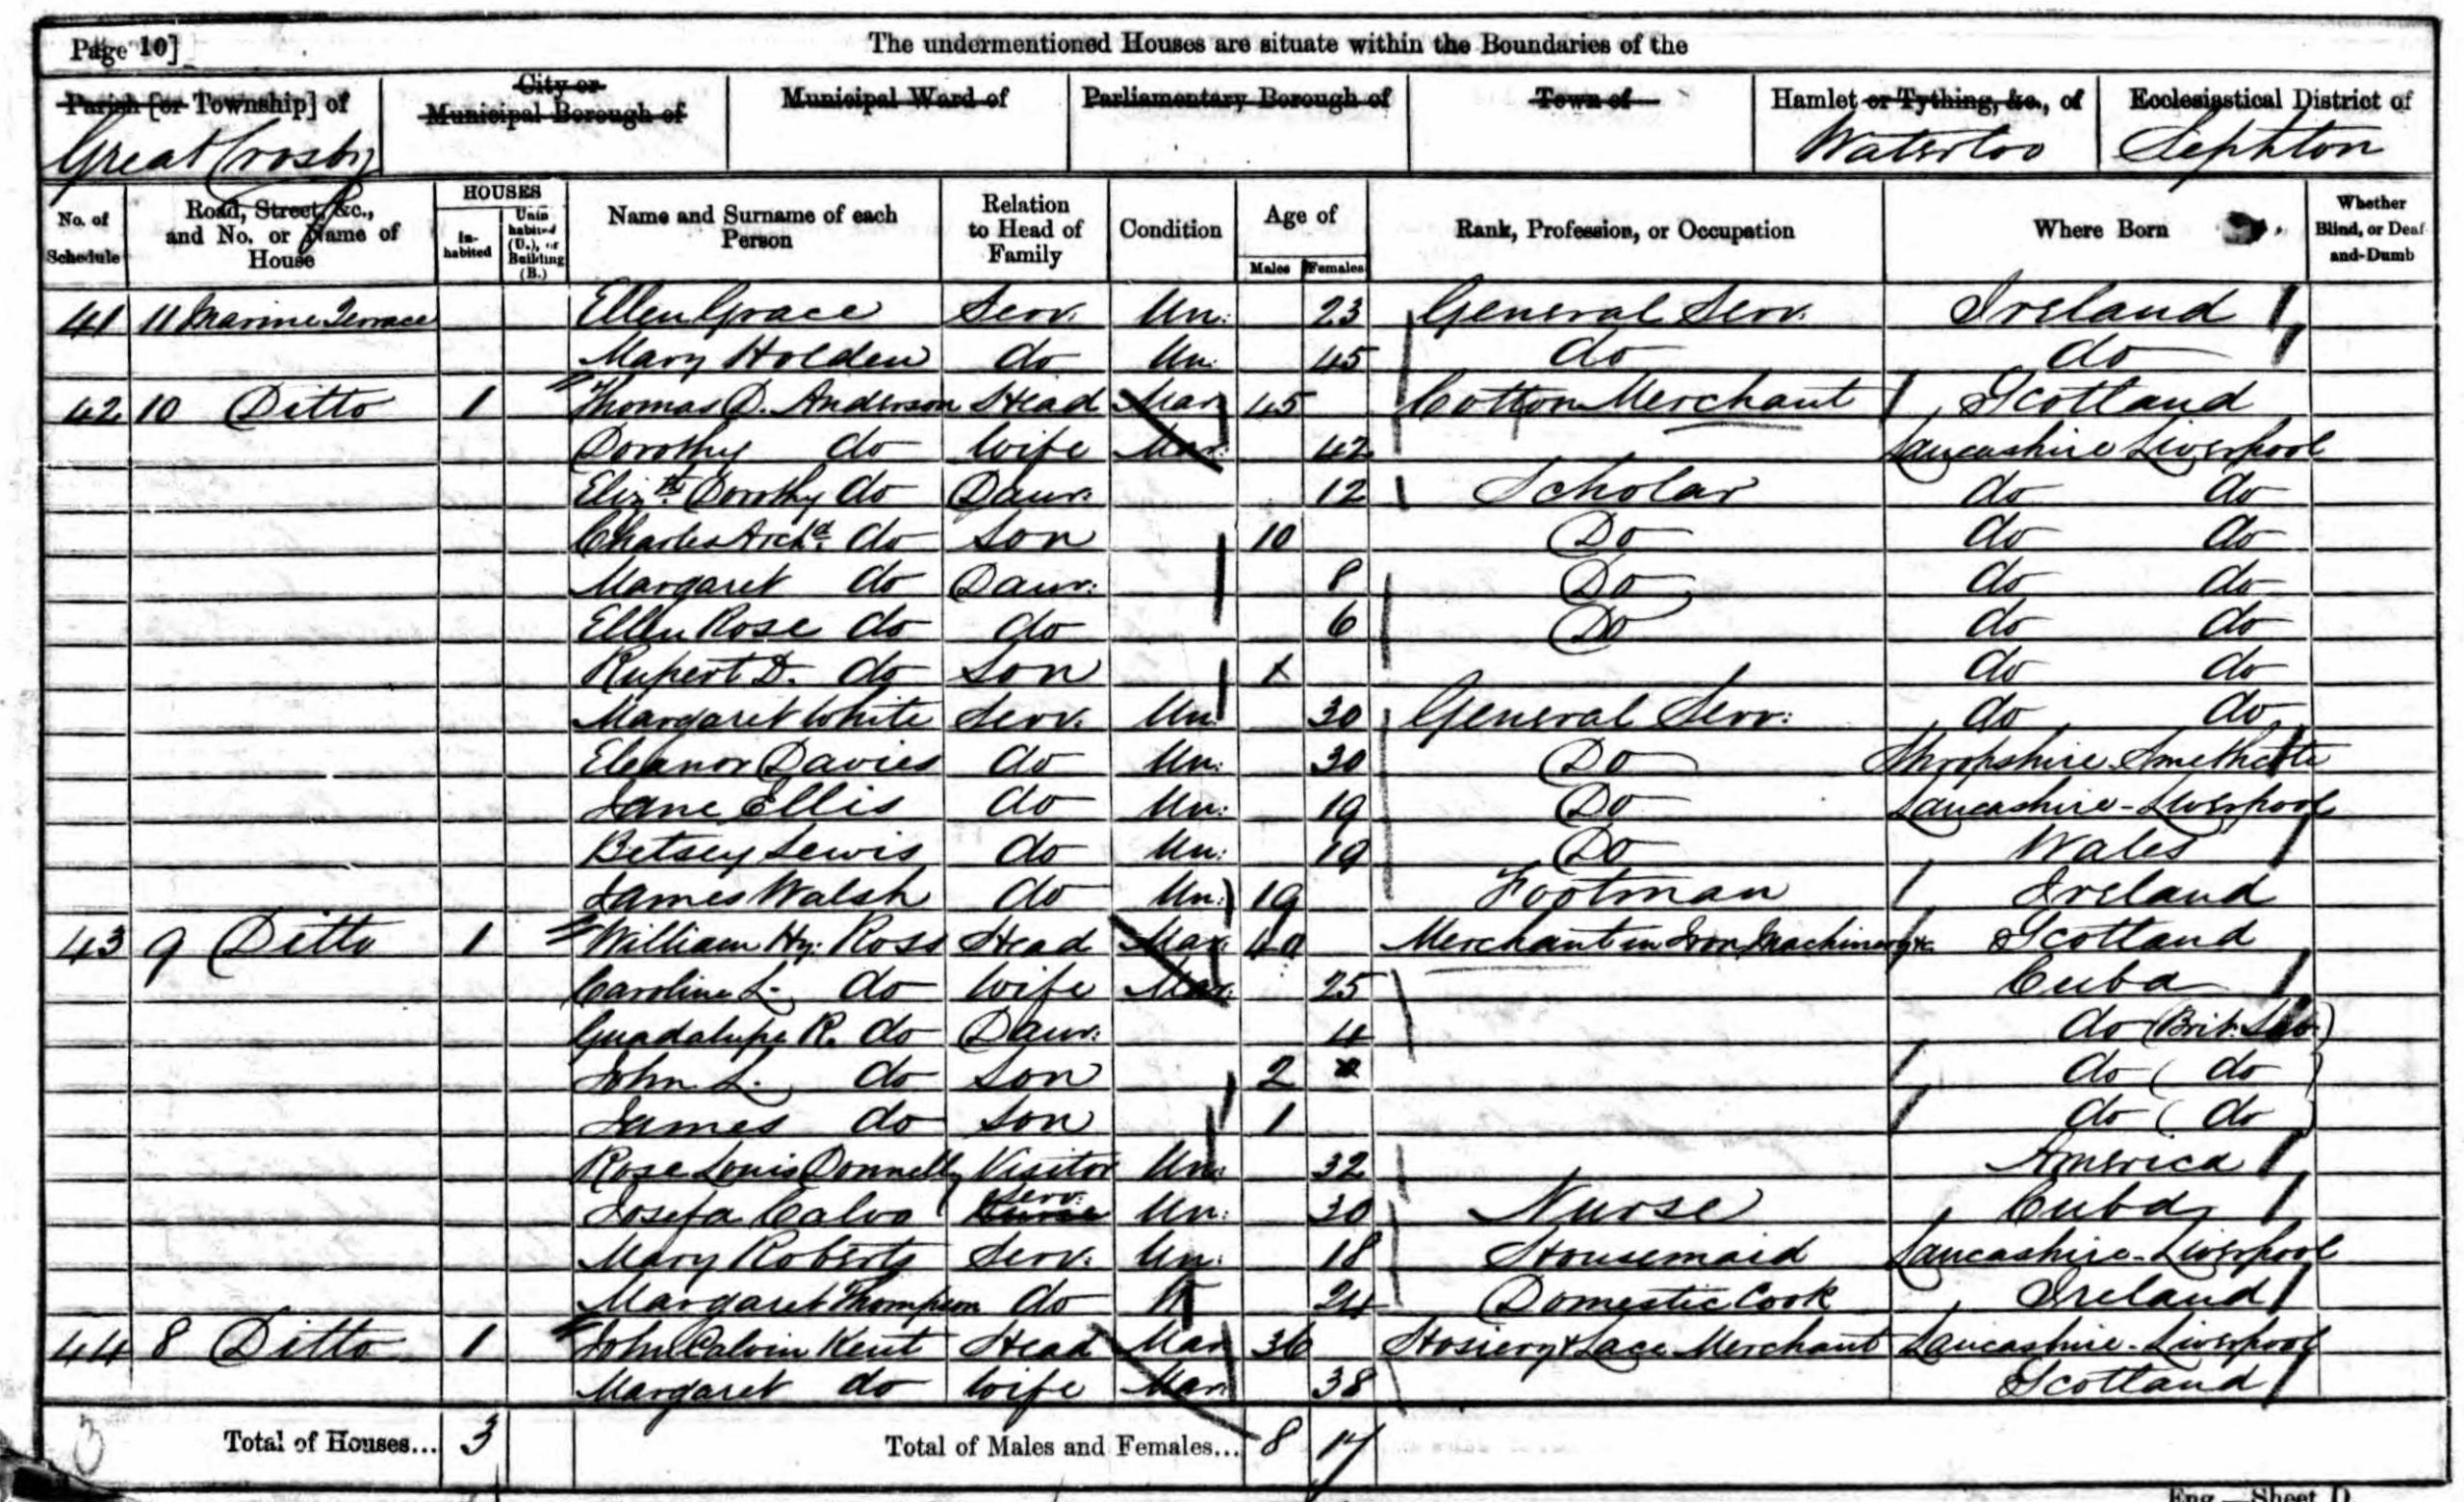 Page 10]
The undermentioned Houses are situate within the Boundaries of the
Parish [or Township] of
Great Crosby
City or Municipal Borough of
Municipal Ward of
Parliamentary Borough of
Town of
Hamlet or Tything, &c., of
Waterloo
Ecclesiastical District of
Sephton
No. of Schedule
Road, Street, &c., and No. or Name of House
HOUSES
In-habited
Unin habited (U.), or Building (B.)
Name and Surname of each Person
Relation to Head of Family
Condition
Age of
Males Females
Rank, Profession, or Occupation
Where Born
Whether Blind, or Deaf-and-Dumb
41 11 Marine Terrace Ellen Grace Serv. Un. 23 General Serv. Ireland
Mary Holden do Un. 45 do do
42 10 Ditto 1 Thomas D. Anderson Head Mar 45 Cotton Merchant Scotland
Dorothy do Wife Mar. 42 Lancashire Liverpool
Elizth Dorothy do Daur. 12 Scholar do do
Charles Archd. do Son 10 Do do do
Margaret do Daur. 8 Do do do
Ellen Rose do do 6 Do do do
Rupert D. do Son do do
Margaret White Serv. Un. 30 General Serv. do do
Eleanor Davies do Un. 30 Do Shropshire
Jane Ellis do Un. 19 Do Lancashire - Liverpool
Betsey Lewis do Un. 19 Do Wales
James Walsh do Un. 19 Footman Ireland
43 9 Ditto 1 William Hy. Ross Head Mar. 40 Merchant in Iron Machinery &c. Scotland
Caroline L. do Wife Mar. 25 Cuba
Guadalupe R. do Daur. 4 do (Brit. Sub.)
John L. do Son 2 do ( do )
James do Son 1 do ( do )
Rose Louis Donnelly Visitor Un. 32 America
Josefa Calvo Serv. Un. 30 Nurse Cuba
Mary Roberts Serv. Un. 18 Housemaid Lancashire - Liverpool
Margaret Thompson do 24 Domestic Cook Ireland
44 8 Ditto 1 John Calvin Kent Head Mar 36 Hosiery & Lace Merchant Lancashire - Liverpool
Margaret do Wife Mar. 38 Scotland
Total of Houses... 3
Total of Males and Females... 8 17
3
Eng.—Sheet D.